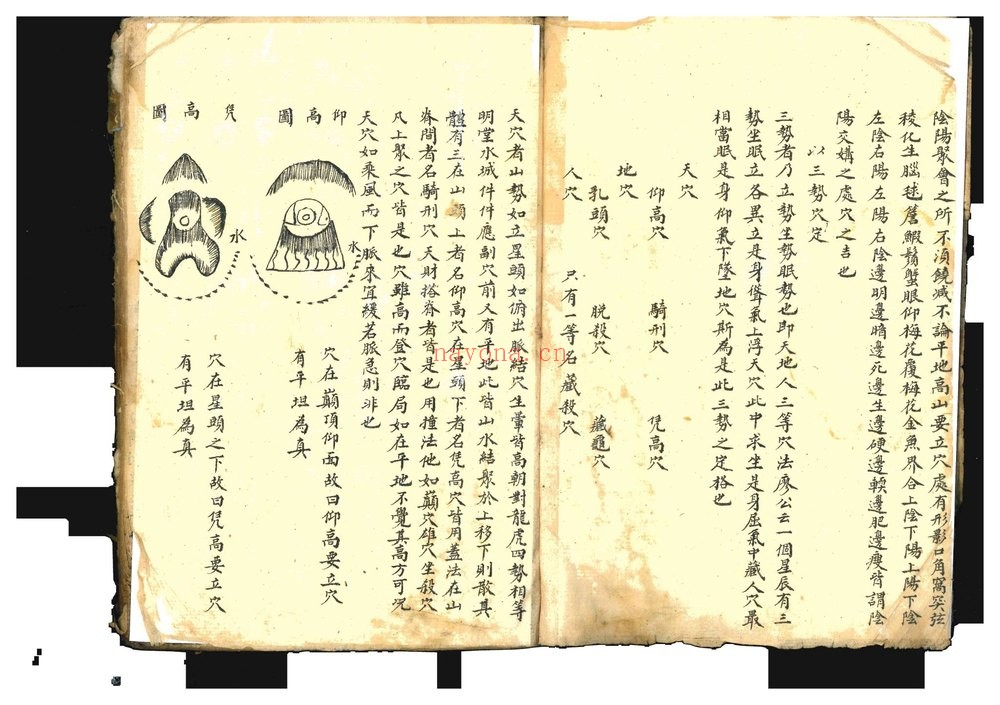 陰陽聚會之所不須饒減不論平地高山要立穴處有形影口角窩突弦
稜化生腦毬簷蝦鬚蟹眼仰梅花覆梅花金魚界合上陰下陽上陽下陰
左陰右陽左陽右陰邊明邊暗邊死邊生邊硬邊輭邊肥邊瘦皆謂陰
陽交媾之處穴之吉也
以三勢穴定
三勢者乃立勢坐勢眠勢也即天地人三等穴法廖公云一個星辰有三
勢坐眠立各異立是身聳氣上浮天穴此中求坐是身屈氣中藏人穴最
相當眠是身仰氣下墜地穴斯為是此三勢之定格也
天穴
仰高穴 騎刑穴 凭高穴
地穴
乳頭穴 脫殺穴 藏龜穴
人穴 只有一等名藏殺穴
天穴者山勢如立星頭如俯出脈結穴生暈皆高朝對龍虎四勢相等
明堂水城件件應副穴前又有平地此皆山水結聚於上移下則散具
體有三在山頭上者名仰高穴在星頭下者名凭高穴皆用蓋法在山
脊間者名騎刑穴天財搭脊者皆是也用撞法他如巔穴雄穴坐殺穴
凡上聚之穴皆是也穴雖高而登穴臨局如在平地不覺其高方可况
天穴如乘風而下脈來宜緩若脈急則非也
仰高圖
水
穴在巔頂仰面故曰仰高要立穴
有平坦為真
凭高圖
水
穴在星頭之下故曰凭高要立穴
有平坦為真
nayona.cn